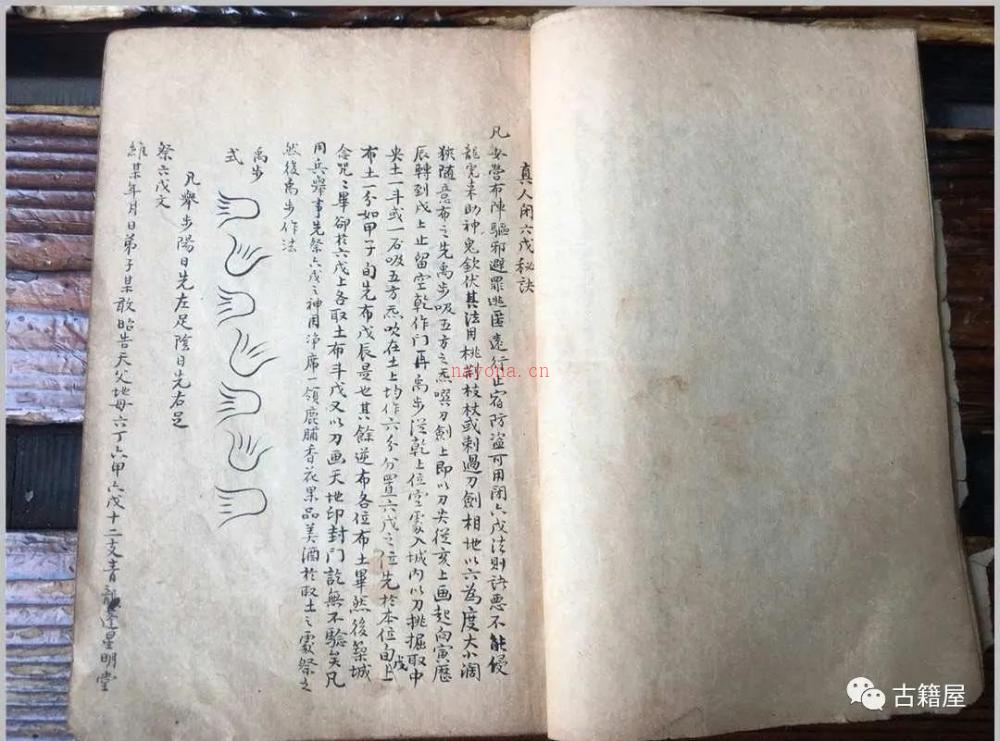 真人闭六戊秘訣
凡安營布陣驅邪避罪逃匿遠行止宿防盜可用闭六戊法則諸惡不能侵
龍兒来助神鬼欽伏其法用桃荊枝杖或刺過刀劍相地以六為度大小濶
狹隨意布之先禹步吸五方之炁噀刀劍上即以刀尖從亥上画起向寅歷
辰轉到戌上止留空乾作門再禹步從乾上位空處入城內以刀挑掘取中
央土一斗或一石吸五方炁吹在土上均作六分分置六戊之位先於本位旬上
戊
布土一分如甲子旬先布戊辰是也其餘逆布各位布土畢然後築城
念咒之畢卻於六戊上各取土布斗戊又以刀画天地印封門訖無不驗矣凡
用兵舉事先祭六戊之神用净席一領鹿脯香花果品美酒於取土之處祭之
然後禹步作法
禹步
式
凡舉步陽日先左足陰日先右足
祭六戊文
維某年月日弟子某敢昭告天父地母六丁六甲六戊十二支青龍蓬星明堂
nayona.cn
古籍屋